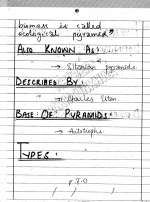 biomass is called
ecological pyramid"
ALSO KNOWN AS:
→ Eltonian pyramids.
DESCRIBED BY:
→ Charles Elton.
BASE OF PYRAMIDS:
→ Autotrophs
TYPES:
P.T.O